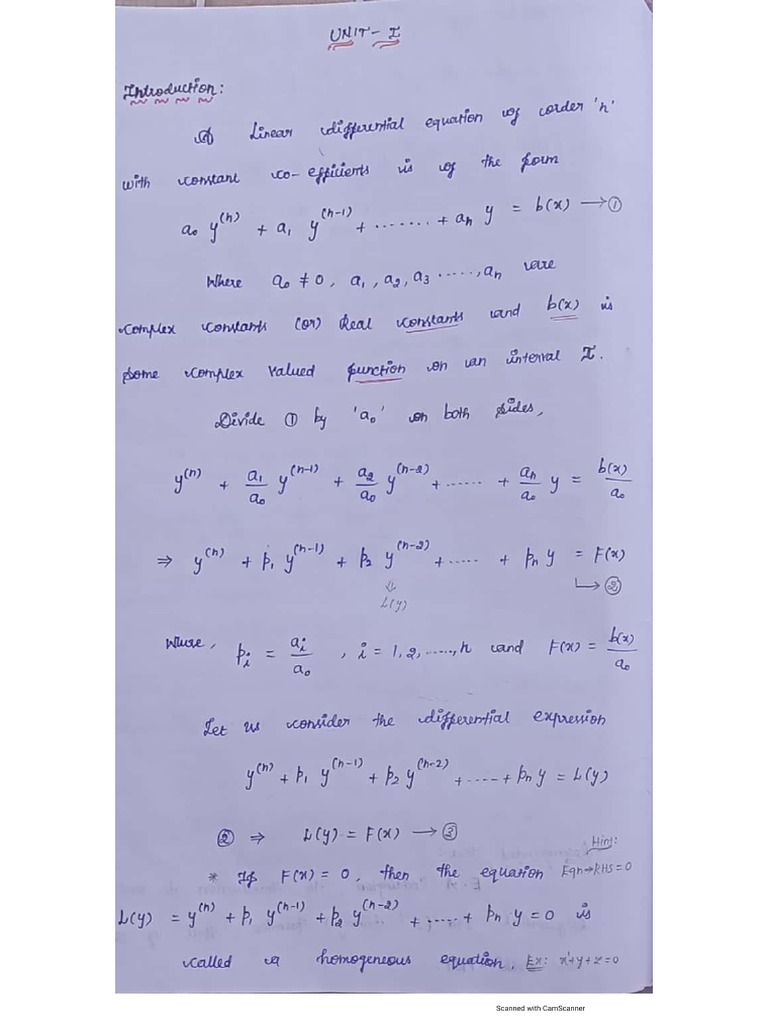 UNIT - I
Introduction:
A Linear differential equation of order 'n'
with constant co-efficients is of the form
a₀ y⁽ⁿ⁾ + a₁ y⁽ⁿ⁻¹⁾ + ....... + aₙ y = b(x) → ①
Where a₀ ≠ 0, a₁, a₂, a₃ ....., aₙ are
complex constants (or) Real constants and b(x) is
some complex valued function on an interval I.
Divide ① by 'a₀' on both sides,
y⁽ⁿ⁾ + a₁/a₀ y⁽ⁿ⁻¹⁾ + a₂/a₀ y⁽ⁿ⁻²⁾ + ...... + aₙ/a₀ y = b(x)/a₀
⇒ y⁽ⁿ⁾ + p₁ y⁽ⁿ⁻¹⁾ + p₂ y⁽ⁿ⁻²⁾ + ..... + pₙ y = F(x)
⇓ ↳ ②
L(y)
Where, pᵢ = aᵢ/a₀ , i = 1, 2, ....., n and F(x) = b(x)/a₀
Let us consider the differential expression
y⁽ⁿ⁾ + p₁ y⁽ⁿ⁻¹⁾ + p₂ y⁽ⁿ⁻²⁾ + ..... + pₙ y = L(y)
② ⇒ L(y) = F(x) → ③
Hint:
* If F(x) = 0, then the equation Eqn→RHS=0
L(y) = y⁽ⁿ⁾ + p₁ y⁽ⁿ⁻¹⁾ + p₂ y⁽ⁿ⁻²⁾ + ..... + pₙ y = 0 is
called a homogeneous equation. Ex:
Scanned with CamScanner